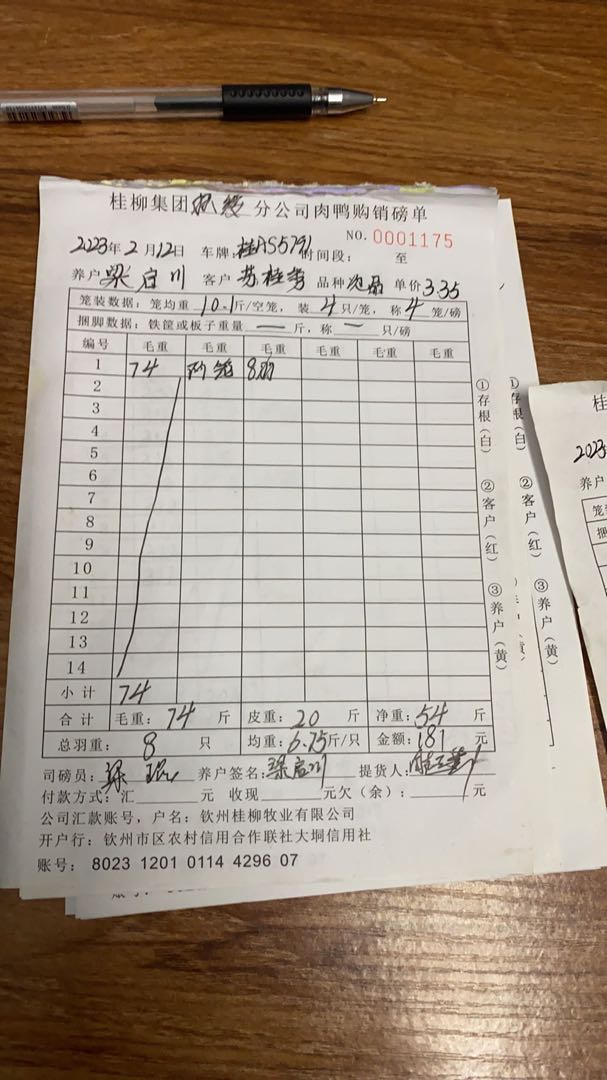 桂柳集团 分公司肉鸭购销磅单
NO. 0001175
2023年2月12日 车牌:桂AS5791 时间段: 至
养户 梁启川 客户 苏桂 品种 单价 3.35
笼装数据:笼均重 10.1 斤/空笼,装 4 只/笼,称 4 笼/磅
捆脚数据:铁筐或板子重量 — 斤,称 — 只/磅
编号 毛重 毛重 毛重 毛重 毛重 毛重
1 74 两笼 8羽
2
3
4
5
6
7
8
9
10
11
12
13
14
小计 74
合计 毛重: 74 斤 皮重: 20 斤 净重: 54 斤
总羽重: 8 只 均重: 6.75 斤/只 金额: 181 元
司磅员: 梁 养户签名: 梁启川 提货人:
付款方式:汇 元 收现 元欠(余): 元
公司汇款账号,户名:钦州桂柳牧业有限公司
开户行:钦州市区农村信用合作联社大垌信用社
账号: 8023 1201 0114 4296 07
①存根(白) ②客户(红) ③养户(黄)
①存根(白) ②客户(红) ③养户(黄)
桂
2023
养户